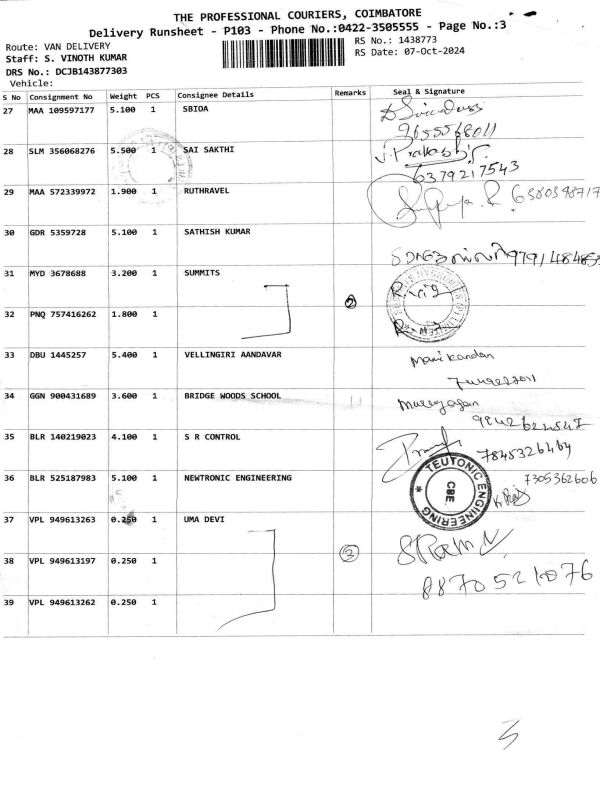 THE PROFESSIONAL COURIERS, COIMBATORE
Delivery Runsheet - P103 - Phone No.:0422-3505555 - Page No.:3
Route: VAN DELIVERY
RS No.: 1438773
Staff: S. VINOTH KUMAR
RS Date: 07-Oct-2024
DRS No.: DCJB143877303
Vehicle:
S No Consignment No Weight PCS Consignee Details Remarks Seal & Signature
27 MAA 109597177 5.100 1 SBIOA
9655568011
28 SLM 356068276 5.500 1 SAI SAKTHI
6379217543
29 MAA 572339972 1.900 1 RUTHRAVEL
30 GDR 5359728 5.100 1 SATHISH KUMAR
31 MYD 3678688 3.200 1 SUMMITS
2
32 PNQ 757416262 1.800 1
33 DBU 1445257 5.400 1 VELLINGIRI AANDAVAR Manikandan
34 GGN 900431689 3.600 1 BRIDGE WOODS SCHOOL
35 BLR 140219023 4.100 1 S R CONTROL
7845326464
36 BLR 525187983 5.100 1 NEWTRONIC ENGINEERING 7305362606
TEUTONIC ENGINEERING
CBE
37 VPL 949613263 0.250 1 UMA DEVI
38 VPL 949613197 0.250 1 3
8870521076
39 VPL 949613262 0.250 1
3